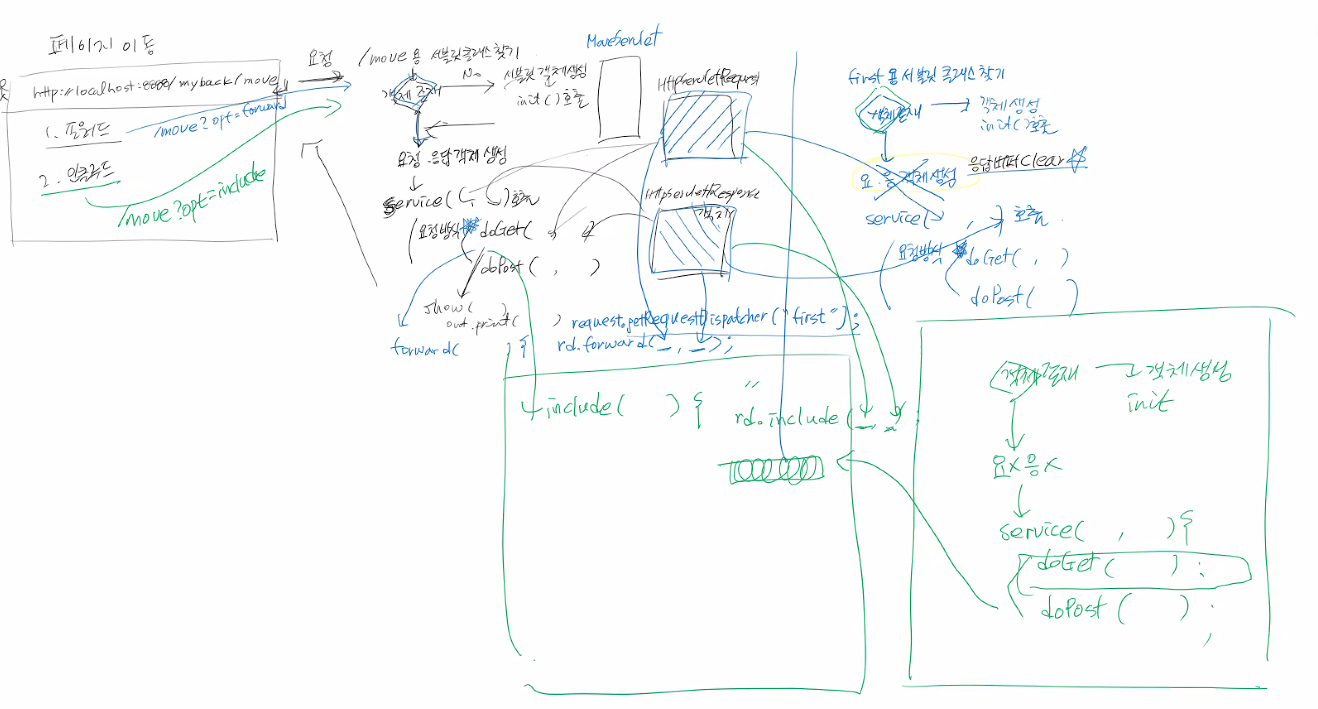 페이지 이동
http://localhost:8888/myback/move
1. 포워드
/move?opt=forward
2. 인클루드
/move?opt=include
요청
/move 용 서블릿클래스찾기
객체존재
No
서블릿 객체생성
init() 호출
요청 응답객체 생성
service( , )호출
요청방식
doGet( , )
doPost( , )
show( )
out.print( )
forward( ) {
MoveServlet
HttpServletRequest
HttpServletResponse
객체
request.getRequestDispatcher("first");
rd.forward( , );
include( ) {
"
rd.include( , );
first 용 서블릿 클래스 찾기
객체존재
객체생성
init()호출
요.응객체생성
응답버퍼clear
service( , ) 호출
요청방식
doGet( , )
doPost( )
객체존재
객체생성
init
요X응X
service( , ){
doGet( );
doPost( );